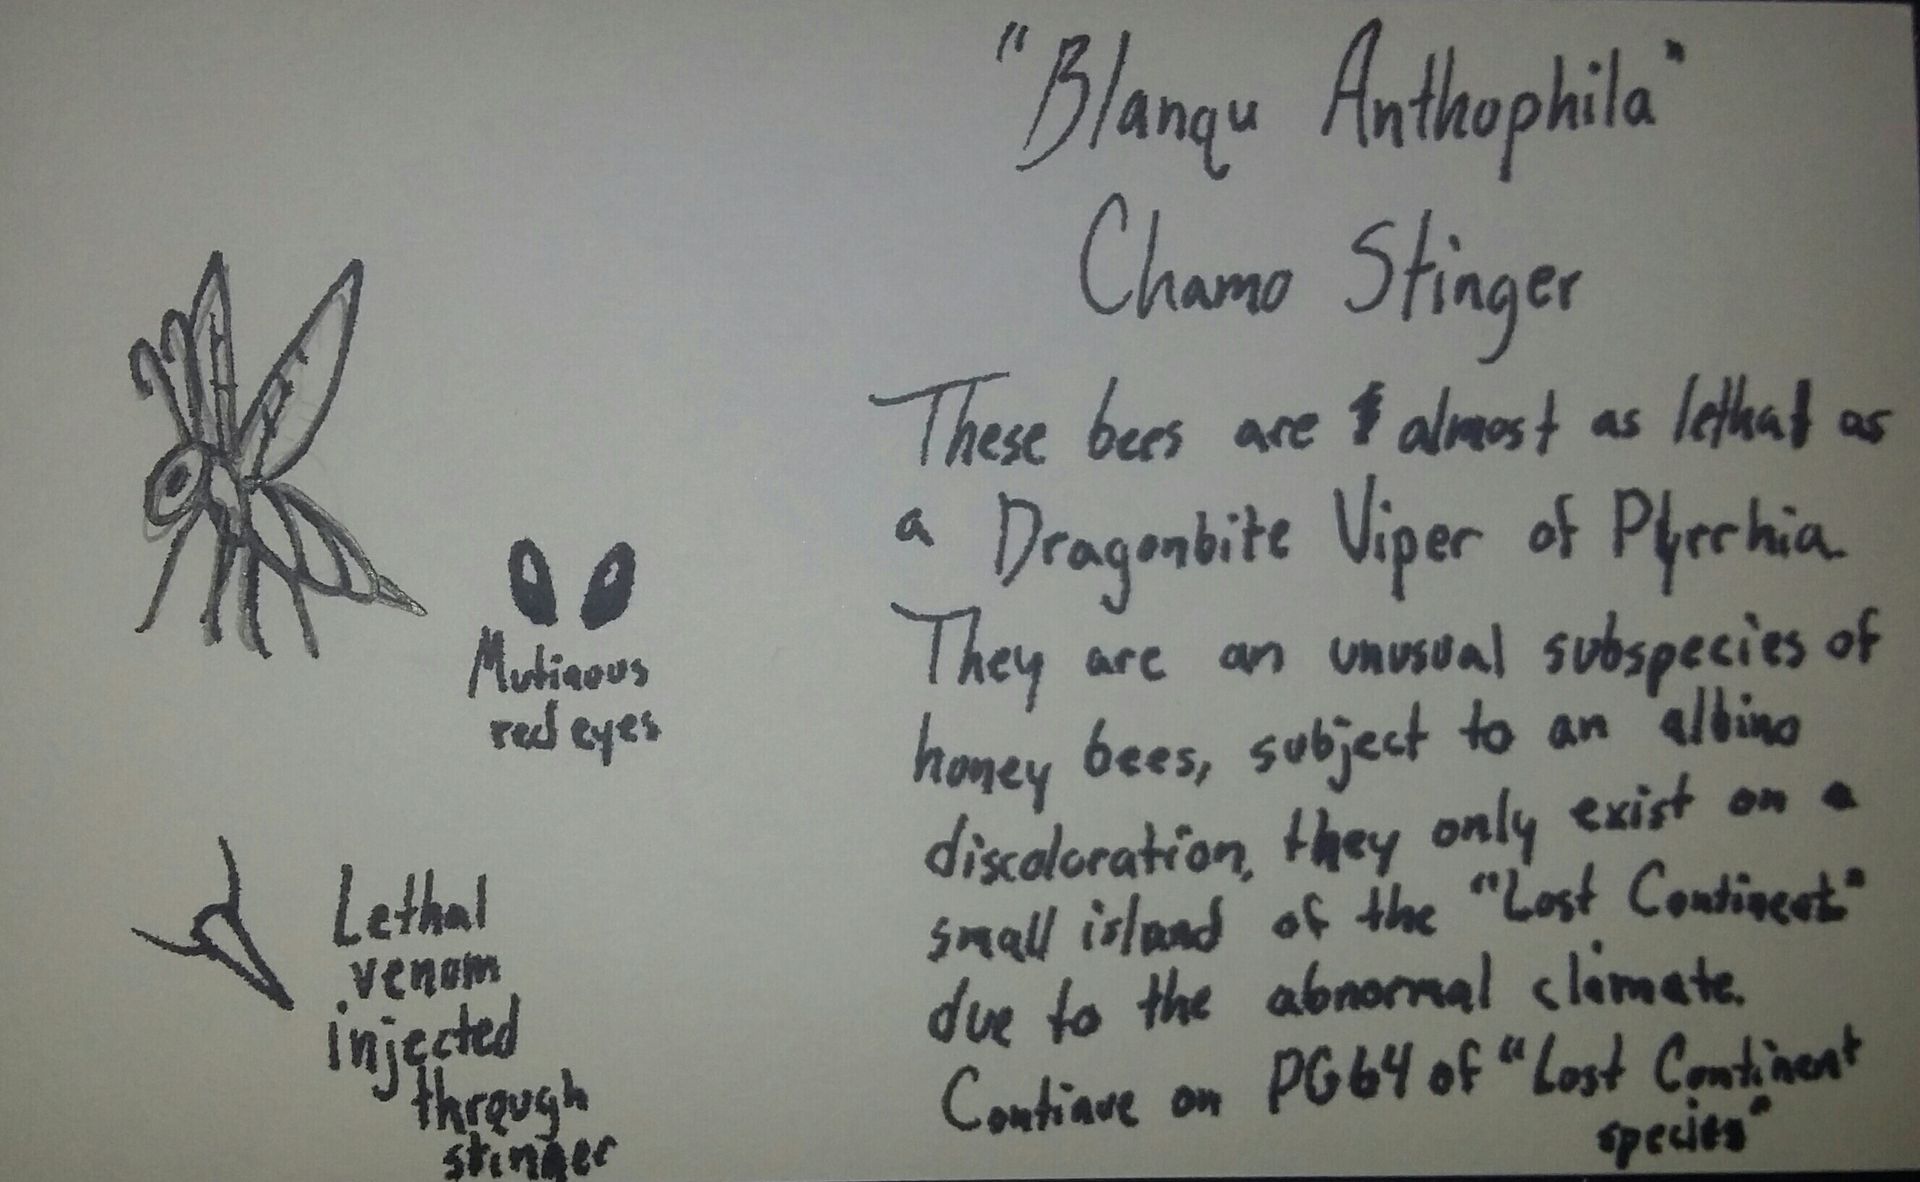 "Blanqu Anthophila"
Chamo Stinger
These bees are almost as lethal as
a Dragonbite Viper of Pyrrhia.
They are an unusual subspecies of
honey bees, subject to an albino
discoloration, they only exist on a
small island of the "Lost Continent"
due to the abnormal climate.
Continue on PG64 of "Lost Continent
species"
Mutinous
red eyes
Lethal
venom
injected
through
stinger